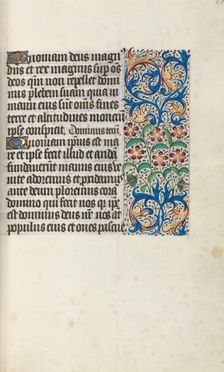 Quoniam deus magn
dñs et rex magnus sup os
deos qm non repellet domi
nus plebem suam quia in
manu eius sunt oms fines
terre et altitudines moncm
ipse conspicit. Dominus tecũ.
Quoniam ipius est ma
re et ipse fecit illud et arida
fundaverunt manus eius ve
nite adoremus et
ante deum ploremus cora
domino qui fecit nos qr ipe
est dominus deus nr̃ nos at
populus eius et oves pascue